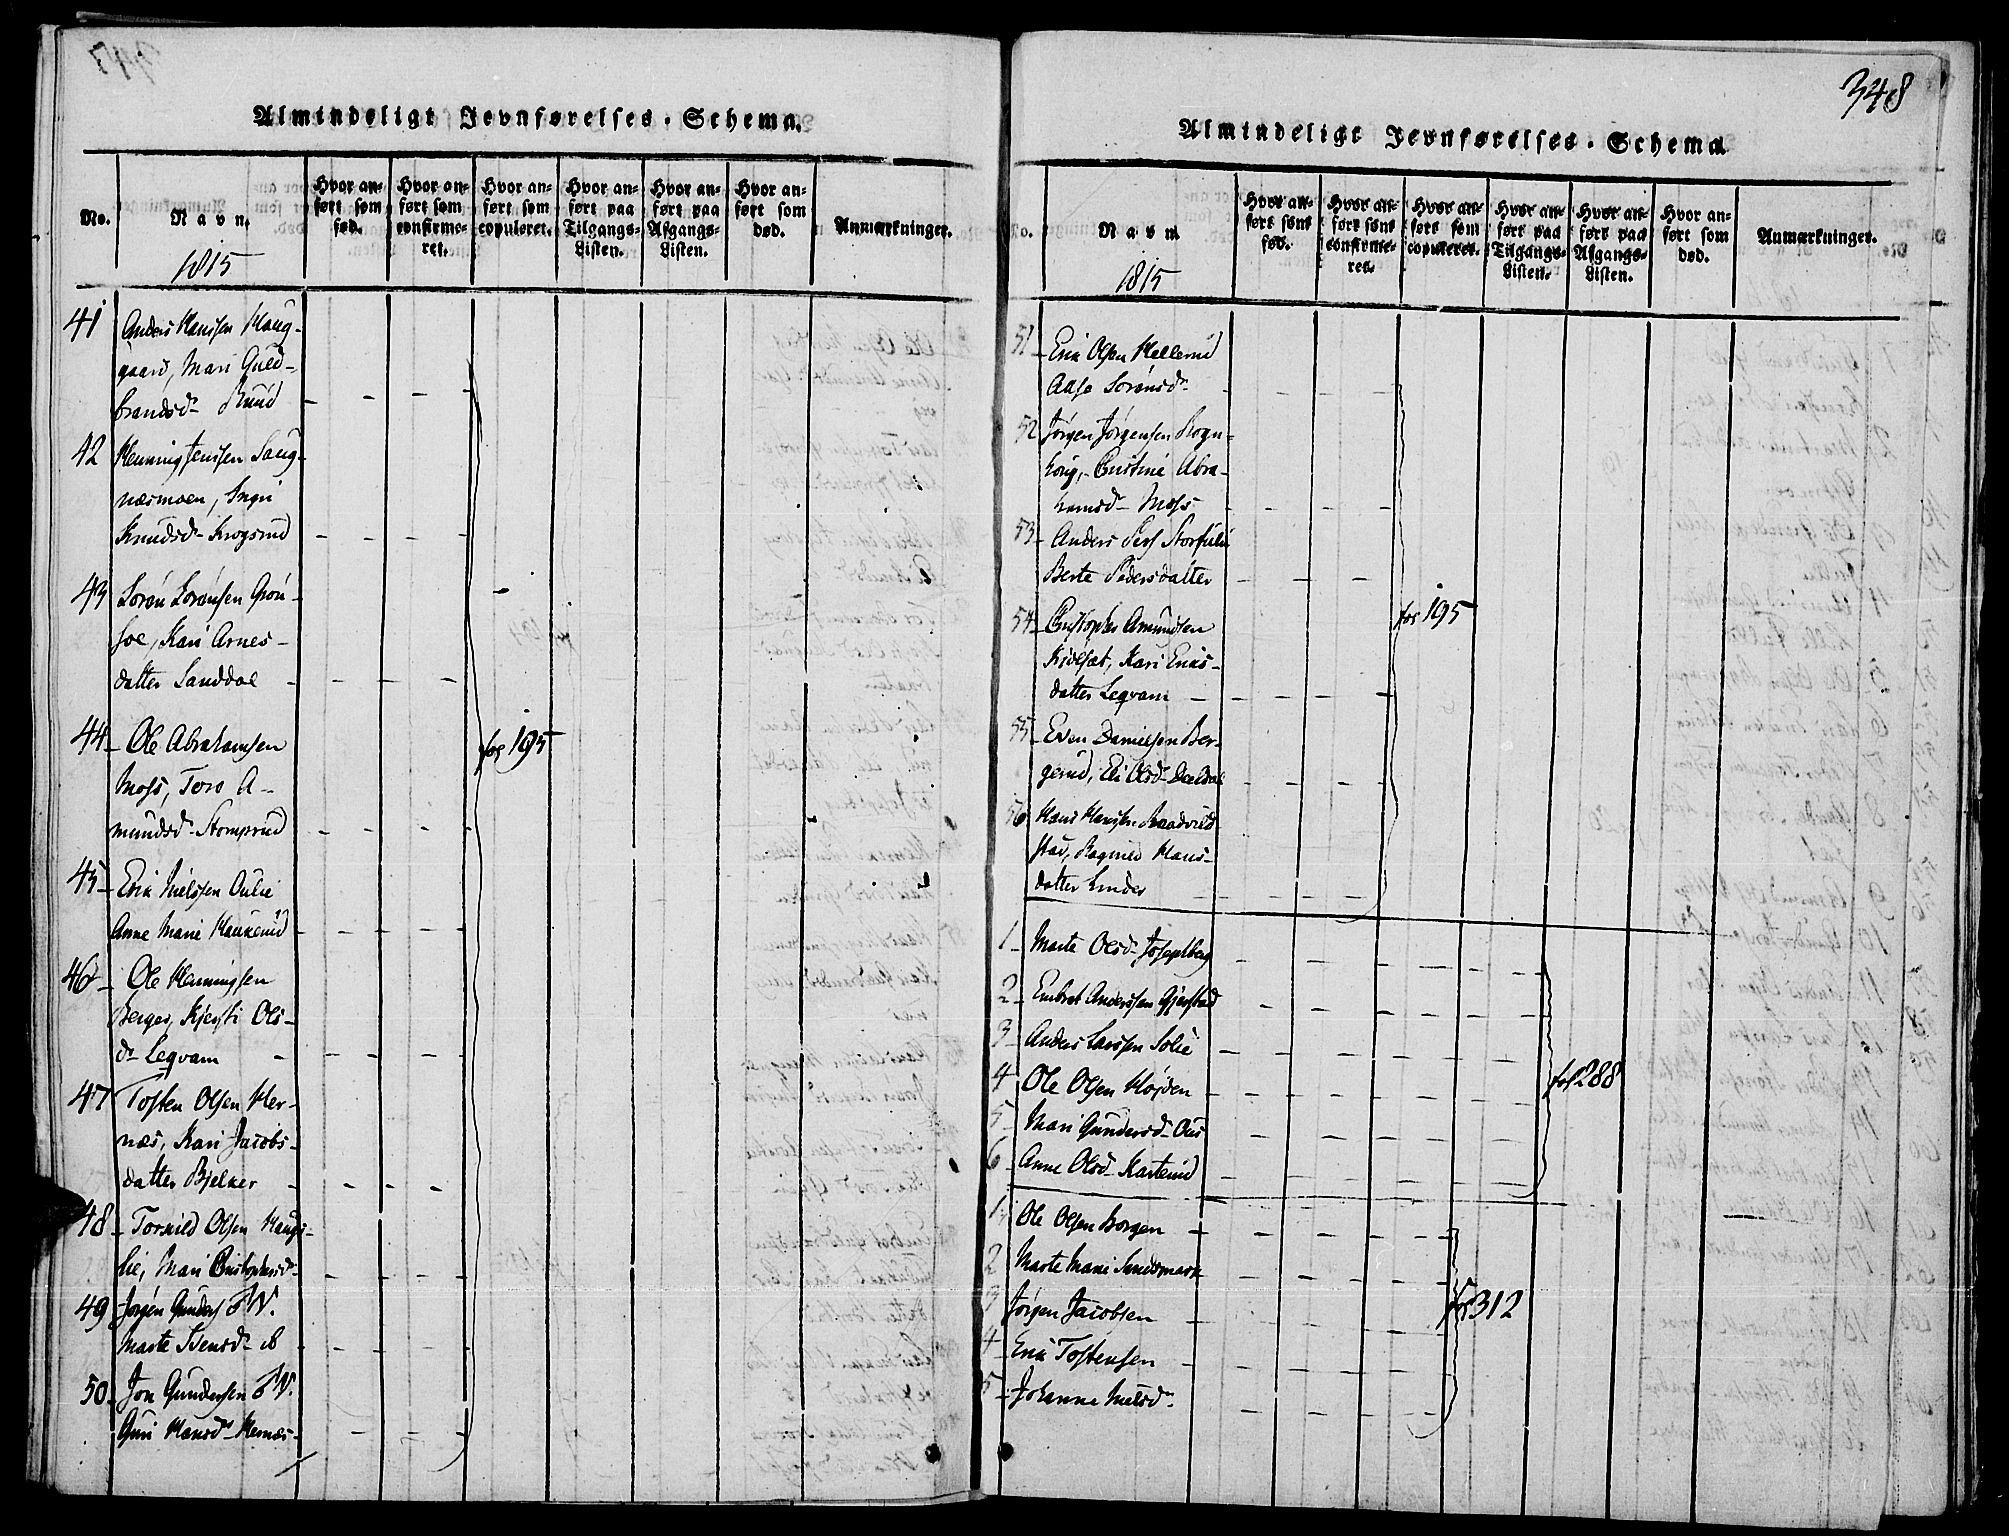 Almindeligt Jevnførelses-Schema.
No.
Navn.
1815
Hvor an-
ført som
fød.
Hvor an-
ført som
confirme-
ret.
Hvor an-
ført som
copuleret.
Hvor an-
ført paa
Tilgangs-
Listen.
Hvor an-
ført paa
Afgangs-
Listen.
Hvor an-
ført som
død.
Anmærkninger.
41 Anders Hanssen Haug-
gaard, Mari Guld-
brandsd. Ruud
42 Henning Jenssen Saug-
næsmoen, Ingri
Knudsd. Krogsrud
43 Søren Sørensen Grøn-
soe, Kari Arnes-
datter Sanddal
44 Ole Abrahamsen
Moss, Toro A-
mundsd. Stomprud
fol 195
45 Erik Nielssen Aulie
Anne Marie Haukerud
46 Ole Henningsen
Berger, Kjersti Ols-
d. Leqvam
47 Tosten Olsen Her-
næs, Kari Jacobs-
datter Bjelker
48 Torkild Olsen Haugs-
lie, Mari Christophersd.
49 Jørgen Gunders. F. W.
Marte Isensd. ib
50 Jon Gundersen F. W.
Guri Hansd. Hernæs
348
Almindeligt Jevnførelses-Schema
No.
Navn
1815
Hvor an-
ført som
fød.
Hvor an-
ført som
confirme-
ret.
Hvor an-
ført som
copuleret.
Hvor an-
ført paa
Tilgangs-
Listen.
Hvor an-
ført paa
Afgangs-
Listen.
Hvor an-
ført som
død.
Anmærkninger.
51 Erik Olsen Hellerud
Aase Sørensd.
52 Jørgen Jørgensen Rogn-
houg, Christine Abra-
hamsd. Moss
53 Anders Pers. Storfulie
Berte Pedersdatter
54 Christopher Amundsen
Kidlsæt, Kari Eriks-
datter Leqvam
fol 195
55 Even Danielsen Ber-
gerud, Eli Olsd.
56 Hans Hanssen Raadvild
stad, Ragnild Hans-
datter Linder
1 Marte Olsd. Josephberg
2 Embret Anderssen Gjerstad
3 Anders Larssen Solie
4 Ole Olsen Højden
fol 288
5 Mari Gundersd. Ous
6 Anne Olsd. Karterud
1 Ole Olsen Borgen
2 Marte Marie Sandsmark
3 Jørgen Jacobsen
fol 312
4 Erik Tostensen
5 Johanne Nielsd.